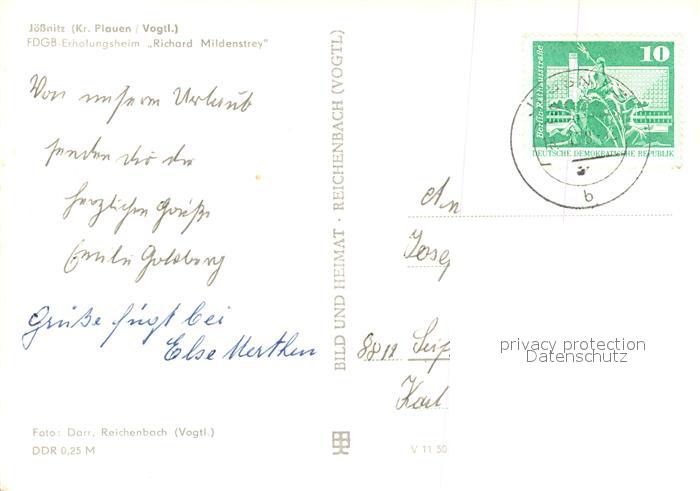 Jößnitz (Kr. Plauen / Vogtl.)
FDGB-Erholungsheim „Richard Mildenstrey"
Von unserem Urlaub
senden dir die
herzlichen Grüße
Emilie Goldberg
Grüße fügt bei
Else Merthen
Foto: Darr, Reichenbach (Vogtl.)
DDR 0,25 M
BILD UND HEIMAT · REICHENBACH (VOGTL)
V 11 50
10
Berlin-Rathausstraße
DEUTSCHE DEMOKRATISCHE REPUBLIK
b
An
Josep
8811 Seif
Karl
privacy protection
Datenschutz